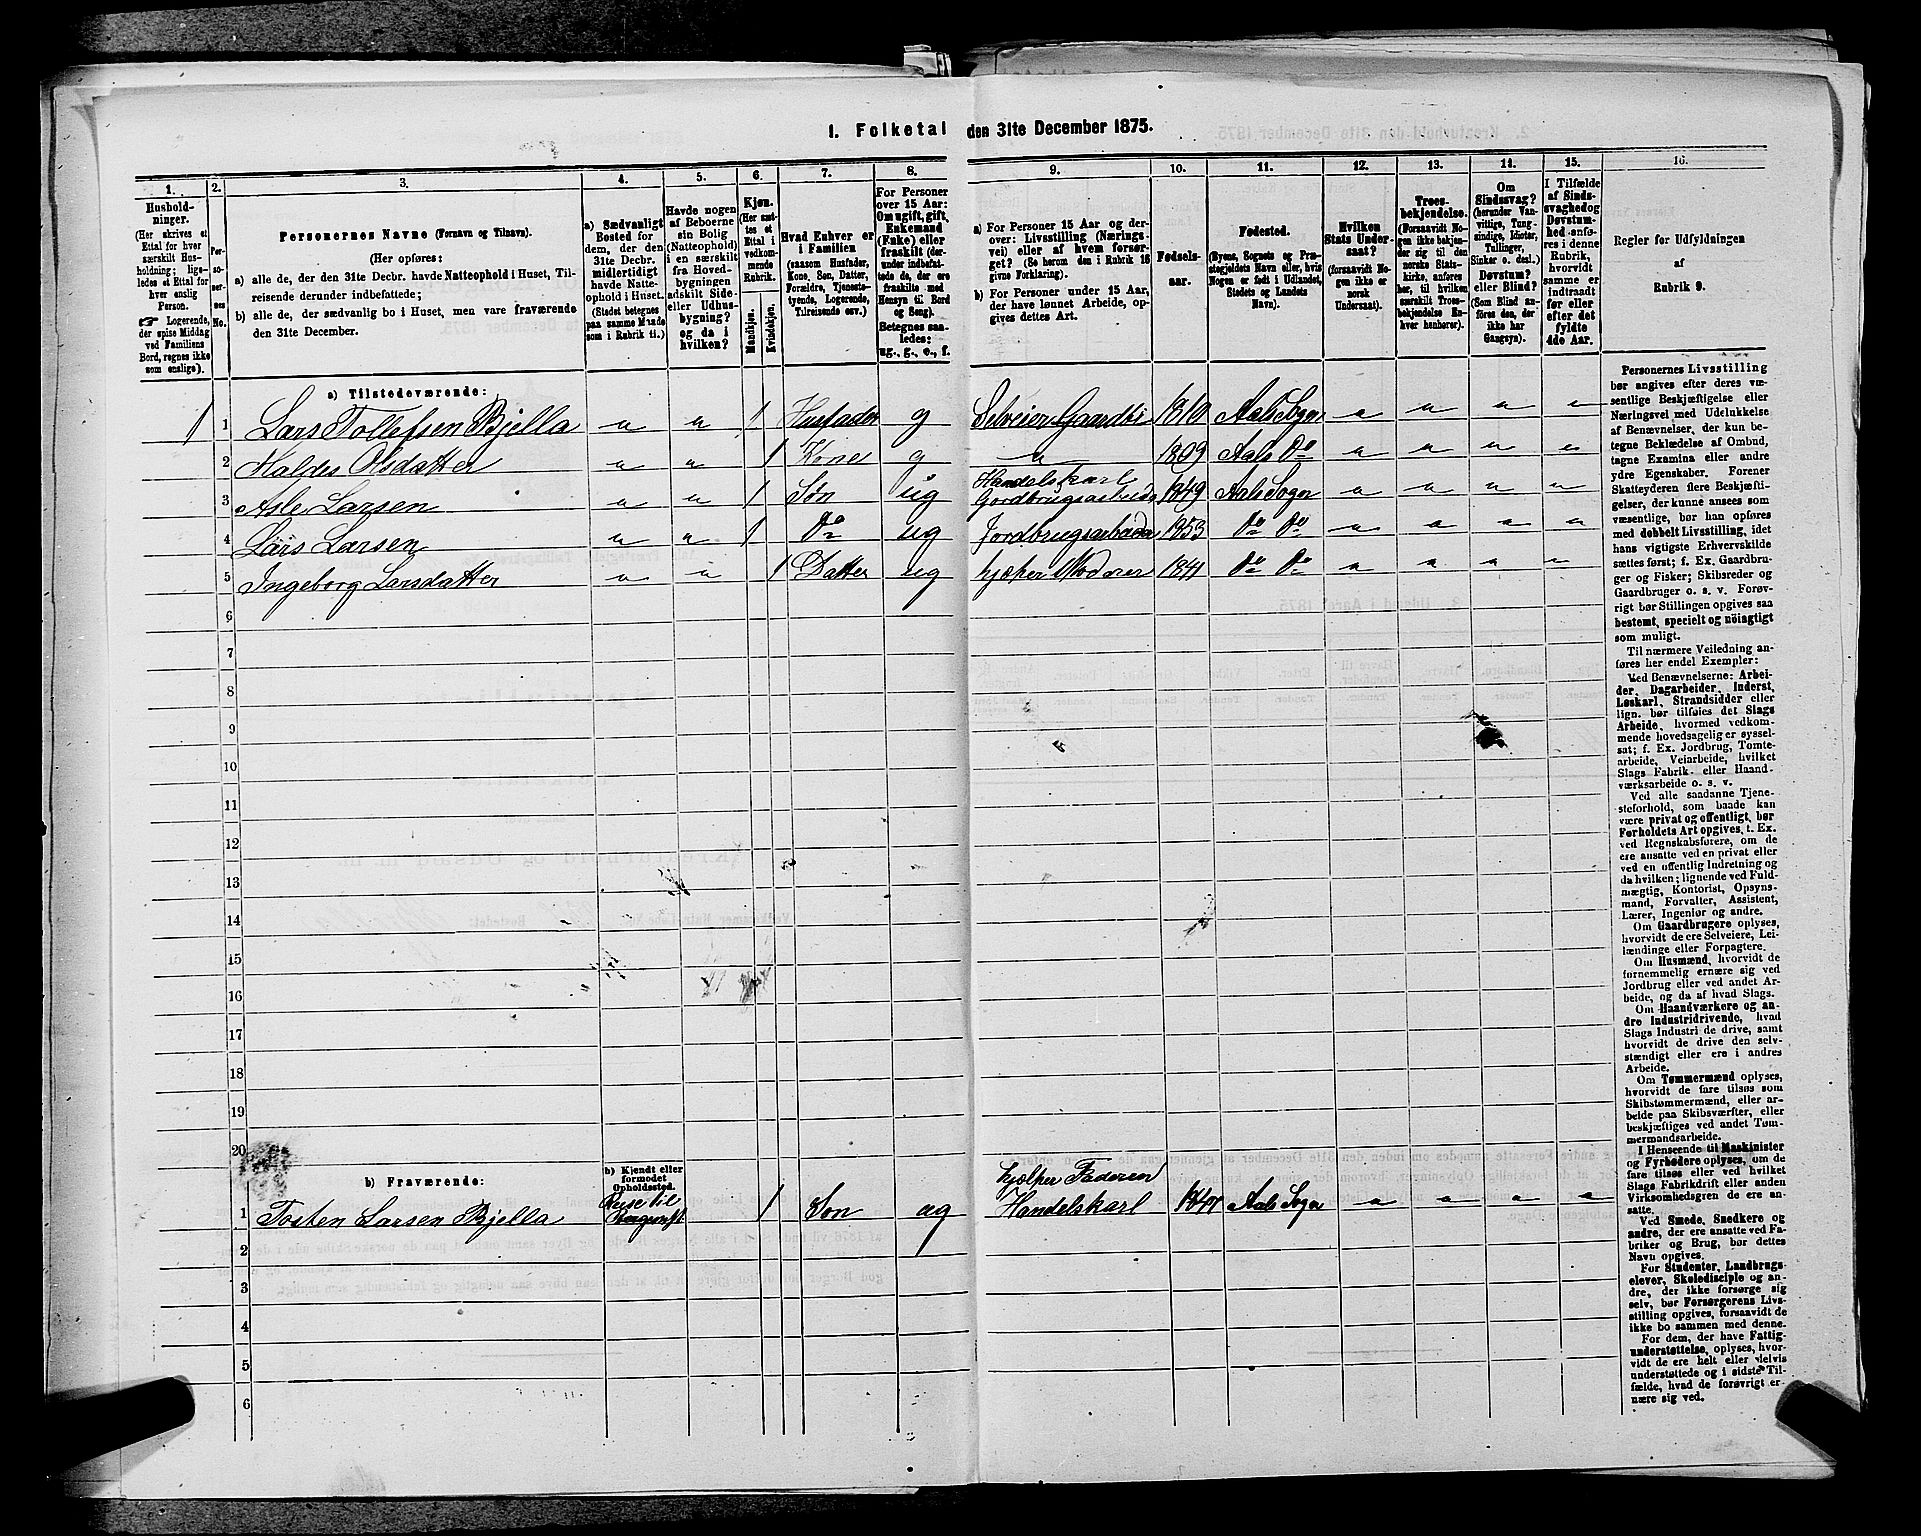 1. Folketal den 31te December 1875.
1. 2. 3. 4. 5. 6. 7. 8. 9. 10. 11. 12. 13. 14. 15. 16.
Hushold-
ninger.
(Her skrives et
Ettal for hver
særskilt Hus-
holdning; lige-
ledes et Ettal for
hver enslig
Person.
☞ Logerende,
der spise Middag
ved Familiens
Bord, regnes ikke
som enslige).
Per-
so-
ner-
nes
No.
Personernes Navne (Fornavn og Tilnavn).
(Her opføres:
a) alle de, der den 31te Decbr. havde Natteophold i Huset, Til-
reisende derunder indbefattede;
b) alle de, der sædvanlig bo i Huset, men vare fraværende
den 31te December.
a) Sædvanligt
Bosted for
dem, der den
31te Decbr.
midlertidigt
havde Natte-
ophold i Huset.
(Stedet betegnes
paa samme Maade
som i Rubrik 11.)
Havde nogen
af Beboerne
sin Bolig
(Natteophold)
i en særskilt
fra Hoved-
bygningen
adskilt Side-
eller Udhus-
bygning?
og da i
hvilken?
Kjøn.
(Her sæt-
tes et
Ettal i
vedkom-
mende
Rubrik.
Mandkjøn.
Kvindekjøn.
Hvad Enhver er
i Familien
(saasom Husfader,
Kone, Søn, Datter,
Forældre, Tjeneste-
tyende, Logerende,
Tilreisende osv.)
For Personer
over 15 Aar:
Om ugift, gift,
Enkemand
(Enke) eller
fraskilt (der-
under indbefat-
tede de, der ere
fraskilte med
Hensyn til Bord
og Seng).
Betegnes saa-
ledes:
ug., g., e., f.
a) For Personer 15 Aar og der-
over: Livsstilling (Nærings-
vei) eller af hvem forsør-
get? (Se herom den i Rubrik 16
givne Forklaring).
b) For Personer under 15 Aar,
der have lønnet Arbeide, op-
gives dettes Art.
Fødsels-
aar.
Fødested.
(Byens, Sognets og Præ-
stegjeldets Navn eller, hvis
Nogen er født i Udlandet,
Stedets og Landets
Navn).
Hvilken
Stats Under-
saat?
(forsaavidt No-
gen ikke er
norsk
Undersaat).
Troes-
bekjendelse.
(Forsaavidt No-
gen ikke bekjen-
der sig til den
norske Stats-
kirke, anføres
her, til hvilken
særskilt Troes-
bekjendelse En-
hver henhører).
Om
Sindssvag?
(herunder Van-
vittige, Tung-
sindige, Idioter,
Tullinger,
Sinker o. desl.)
Døvstum?
eller Blind?
(Som Blind an-
føres den, der
ikke har
Gangsyn).
I Tilfælde
af Sinds-
svaghed og
Døvstum-
hed anfø-
res i denne
Rubrik,
hvorvidt
samme er
indtraadt
før eller
efter det
fyldte
4de Aar.
Regler for Udfyldningen
af
Rubrik 9.
a) Tilstedeværende:
1 1 Lars Tollefsen Bjella " " 1 Husfader g Selveier Gaardbr 1810 Aals Sogn " " " "
2 Haldis Olsdatter " " 1 Kone g " 1809 Aals Do " " " "
Handelskarl
3 Asle Larsen " " 1 Søn ug Gordbrugsarbeide 1849 Aals Sogn " " " "
4 Lars Larsen " " 1 Do ug Jordbrugsarbeide 1853 Do Do " " " "
5 Ingeborg Larsdatter " " 1 Datter ug hjelper Moderen 1841 Do Do " " " "
6
7
8
9
10
11
12
13
14
15
16
17
18
19
20
b) Fraværende:
b) Kjendt eller
formodet
Opholdssted.
hjelper Faderen
1 Tosten Larsen Bjella Reise til 1 Søn ug Handelskarl Aals Sogn " " " "
2
3
4
5
6
Personernes Livsstilling
bør angives efter deres væ-
sentlige Beskjæftigelse eller
Næringsvei med Udelukkelse
af Benævnelser, der kun be-
tegne Beklædelse af Ombud,
tagne Examina eller andre
ydre Egenskaber. Forener
Skatteyderen flere Beskjæfti-
gelser, der kunne ansees som
væsentlige, bør han opføres
med dobbelt Livsstilling, idet
hans vigtigste Erhvervskilde
sættes først; f. Ex. Gaardbru-
ger og Fisker; Skibsreder og
Gaardbruger o. s. v. Forøv-
rigt bør Stillingen opgives saa
bestemt, specielt og nöiagtigt
som muligt.
Til nærmere Veiledning an-
føres her endel Exempler:
Ved Benævnelserne: Arbei-
der, Dagarbeider, Inderst,
Løskarl, Strandsidder eller
lign. bør tilføies det Slags
Arbeide, hvormed vedkom-
mende hovedsagelig er syssel-
sat; f. Ex. Jordbrug, Tomte-
arbeide, Veiarbeide, hvilket
Slags Fabrik- eller Haand-
værksarbeide o. s. v.
Ved alle saadanne Tjene-
steforhold, som baade kan
være privat og offentligt, bør
Forholdets Art opgives, t. Ex.
ved Regnskabsførere, om de
ere ansatte ved en privat eller
ved en offentlig Indretning og
da hvilken; lignende ved Fuld-
mægtig, Kontorist, Opsyns-
mand, Forvalter, Assistent,
Lærer, Ingeniør og andre.
Om Gaardbrugere oplyses,
hvorvidt de ere Selveiere, Lei-
lændinge eller Forpagtere.
Om Husmænd, hvorvidt de
fornemmelig ernære sig ved
Jordbrug eller ved andet Ar-
beide, og da af hvad Slags.
Om Haandværkere og an-
dre Industridrivende, hvad
Slags Industri de drive, samt
hvorvidt de drive den selv-
stændigt eller ere i andres
Arbeide.
Om Tømmermænd oplyses,
hvorvidt de fare tilsøs som
Skibstømmermænd, eller ar-
beide paa Skibsværfter, eller
beskjæftiges ved andet Tøm-
mermandsarbeide.
I Henseende til Maskinister
og Fyrbødere oplyses, om de
fare tilsøs eller ved hvilket
Slags Fabrikdrift eller anden
Virksomhedsgren de ere an-
satte.
Ved Smede, Snedkere og
andre, der ere ansatte ved Fa-
briker og Brug, bør dettes
Navn opgives.
For Studenter, Landbrugs-
elever, Skoledisciple og an-
dre, der ikke forsørge sig
selv, bør Forsørgerens Livs-
stilling opgives, forsaavidt de
ikke bo sammen med denne.
For dem, der have Fattig-
understøttelse, oplyses, hvor-
vidt de ere helt eller delvis
understøttede og i sidste Til-
fælde, hvad de forøvrigt er-
nære sig ved.